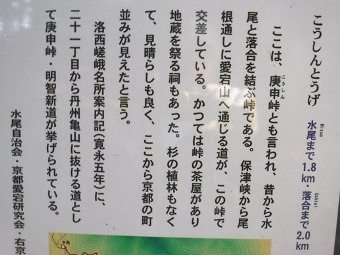 こうしんとうげ
水尾まで 1.8 km・落合まで 2.0 km
ここは、庚申峠とも言われ、昔から水
尾と落合を結ぶ峠である。保津峡から尾
根通しに愛宕山へ通じる道が、この峠で
交差している。かつては峠の茶屋があり
地蔵を祭る祠もあった。杉の植林もなく
て、見晴らしも良く、ここから京都の町
並みが見えたと言う。
洛西嵯峨名所案内記(寛永五年)に、
二十一丁目から丹州亀山に抜ける道とし
て庚申峠・明智新道が挙げられている。
水尾自治会・京都愛宕研究会・右京